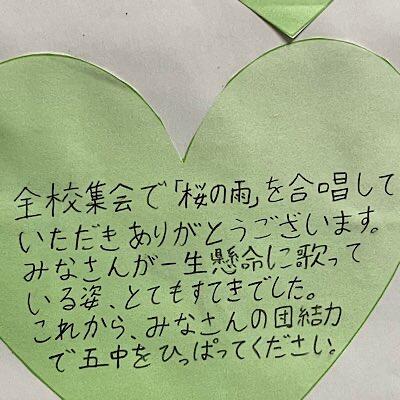 全校集会で「桜の雨」を合唱して
いただきありがとうございます。
みなさんが一生懸命に歌って
いる姿、とてもすてきでした。
これから、みなさんの団結力
で五中をひっぱってください。